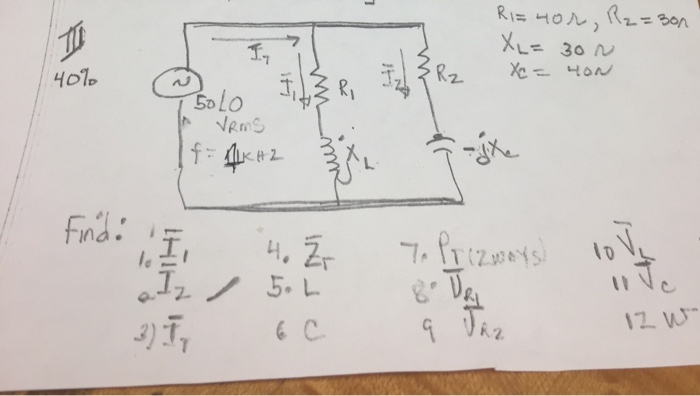 III
40%
R1 = 40Ω, R2 = 30Ω
XL = 30 Ω
XC = 40Ω
IT
I1
R1
I2
R2
50∠0
VRMS
f = 1KHZ
jXL
-jXc
Find:
1. I̅1
2. I̅2
3) I̅T
4. Z̅T
5. L
6 C
7. PT (2 ways)
8. V̅R1
9 V̅R2
10 V̅L
11 V̅C
12 W